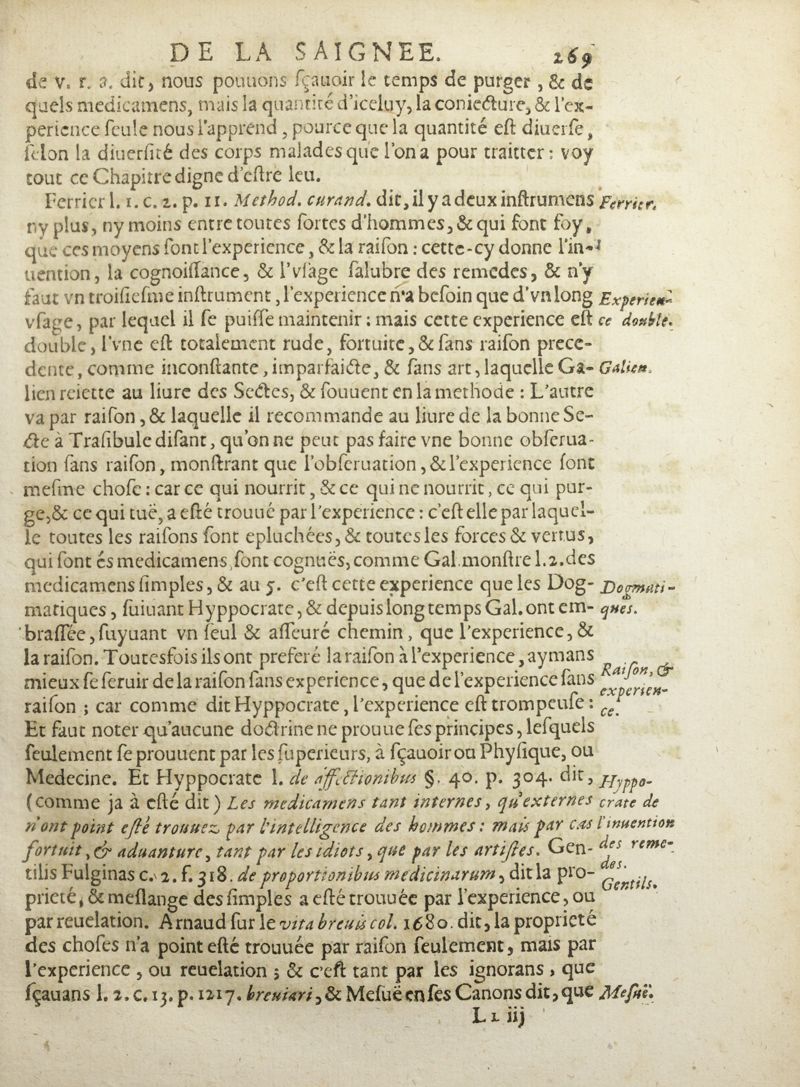 DE LA SAIGNEE. 269
de v. r. 3. dit, nous pouuons sçauoir le temps de purger, & de
quels medicamens, mais la quantité d'iceluy, la coniecture, & l'ex-
perience seule nous l'apprend, pource que la quantité est diuerse,
selon la diuersité des corps malades que l'on a pour traitter: voy
tout ce Chapitre digne d'estre leu.
Ferrier l. 1. c. 2. p. 11. Method. curand. dit, il y a deux instrumens Ferrier.
ny plus, ny moins entre toutes sortes d'hommes, & qui font foy,
que ces moyens sont l'experience, & la raison: cette-cy donne l'in-
uention, la cognoissance, & l'vsage salubre des remedes, & n'y
faut vn troisiesme instrument, l'experience n'a besoin que d'vn long Experien-
vsage, par lequel il se puisse maintenir: mais cette experience est ce double.
double, l'vne est totalement rude, fortuite, & sans raison prece-
dente, comme inconstante, imparfaicte, & sans art, laquelle Ga- Galien.
lien reiette au liure des Sectes, & souuent en la methode: L'autre
va par raison, & laquelle il recommande au liure de la bonne Se-
cte à Trasibule disant, qu'on ne peut pas faire vne bonne obserua-
tion sans raison, monstrant que l'obseruation, & l'experience sont
mesme chose: car ce qui nourrit, & ce qui ne nourrit, ce qui pur-
ge, & ce qui tuë, a esté trouué par l'experience: c'est elle par laquel-
le toutes les raisons sont epluchées, & toutes les forces & vertus,
qui sont és medicamens, sont cognuës, comme Gal. monstre l. 2. des
medicamens simples, & au 5. c'est cette experience que les Dog- Dogmati-
matiques, suiuant Hyppocrate, & depuis long temps Gal. ont em- ques.
brassée, suyuant vn seul & asseuré chemin, que l'experience, &
la raison. Toutesfois ils ont preferé la raison à l'experience, aymans
mieux se seruir de la raison sans experience, que de l'experience sans Raison, & experien-
raison; car comme dit Hyppocrate, l'experience est trompeuse: ce.
Et faut noter qu'aucune doctrine ne prouue ses principes, lesquels
seulement se prouuent par les superieurs, à sçauoir ou Physique, ou
Medecine. Et Hyppocrate l. de affectionibus §. 40. p. 304. dit, Hyppo-
(comme ja à esté dit) Les medicamens tant internes, qu'externes crate de
n'ont point esté trouuez par l'intelligence des hommes: mais par cas l'inuention
fortuit, & aduanture, tant par les idiots, que par les artistes. Gen- des reme-
tilis Fulginas c. 2. f. 318. de proportionibus medicinarum, dit la pro- des.
prieté, & meslange des simples a esté trouuée par l'experience, ou Gentils.
par reuelation. Arnaud sur le vita breuis col. 1680. dit, la proprieté
des choses n'a point esté trouuée par raison seulement, mais par
l'experience, ou reuelation; & c'est tant par les ignorans, que
sçauans l. 2. c. 13. p. 1217. breuiari, & Mesuë en ses Canons dit, que Mesuë.
Ll iij